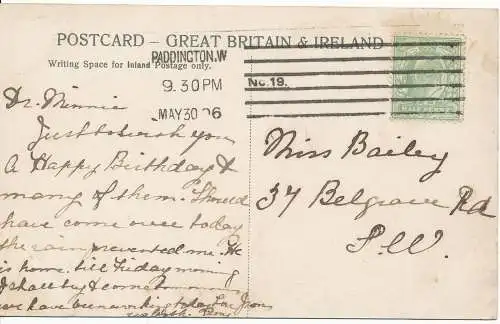 POSTCARD – GREAT BRITAIN & IRELAND
Writing Space for Inland Postage only.
PADDINGTON.W
9.30PM
MAY30 06
No.19.
Dr. Minnie
Just to wish you
A Happy Birthday &
many of them. Should
have come over today
the rain prevented me. He
is home till Friday morning
I shall try & come tomorrow
we have been working today
Miss Bailey
37 Belgrave Rd
S.W.